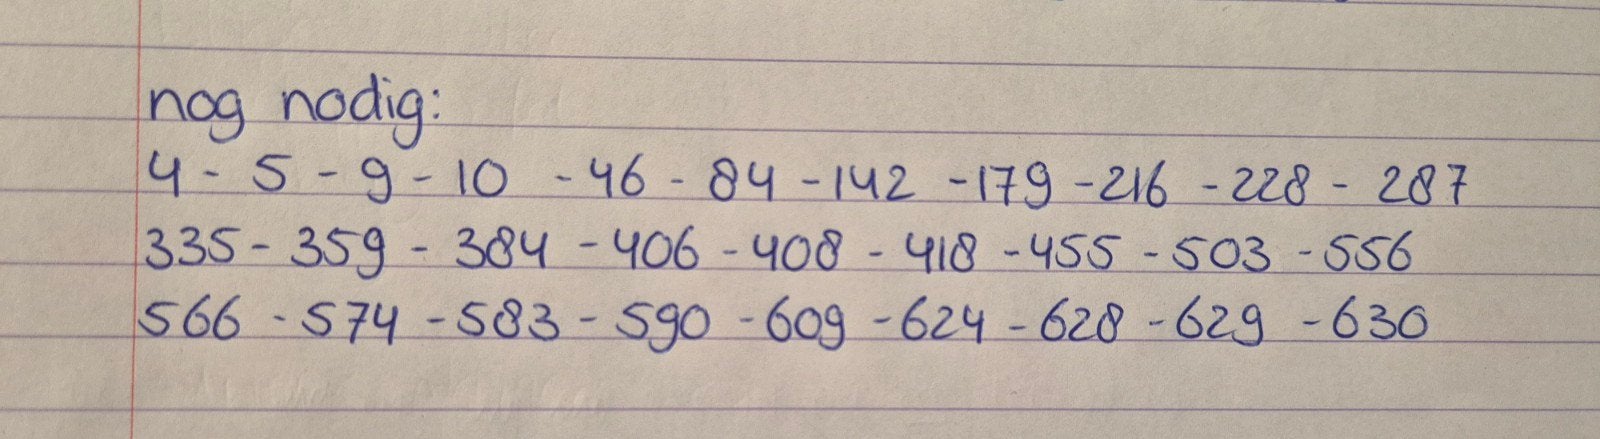 nog nodig:
4 - 5 - 9 - 10 - 46 - 84 - 142 - 179 - 216 - 228 - 287
335 - 359 - 384 - 406 - 408 - 418 - 455 - 503 - 556
566 - 574 - 583 - 590 - 609 - 624 - 628 - 629 - 630